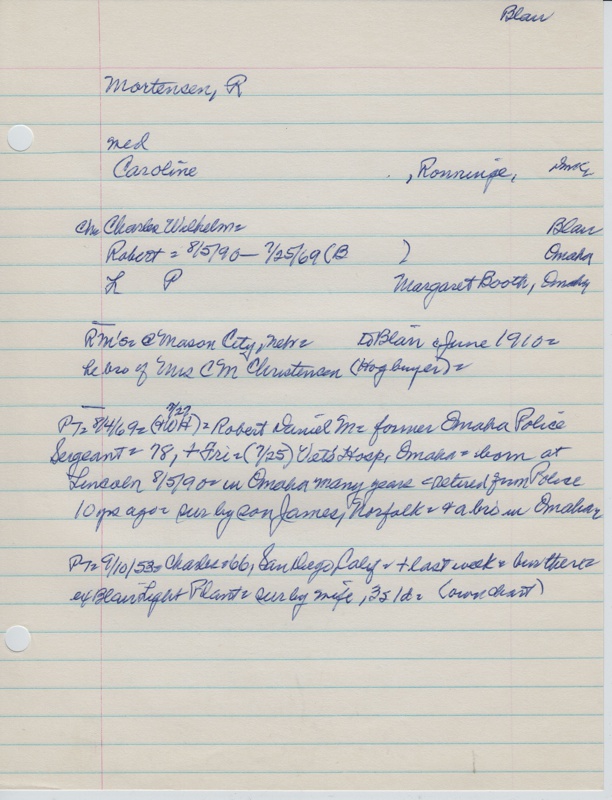 Blair
Mortensen, R
med
Caroline , Ronninge,
Ch= Charles Wilhelm= Blair
Robert = 8/5/90 — 7/25/69 (B ) Omaha
L P Margaret Booth, Omaha
RM's= @ Mason City, Neb= to Blair c June 1910=
he bro of Mrs C M Christensen (Hog buyer)=
PT= 8/4/69= (7/27 OWH)= Robert Daniel M= former Omaha Police
Sergeant= 78, + Fri= (7/25) Vets Hosp, Omaha= born at
Lincoln 8/5/90= in Omaha many years = retired from Police
10 yrs ago= sur by son James, Norfolk= & a bro in Omaha=
PT= 9/10/53= Charles= 66, San Diego Calif= + last week= bur there=
ex Blair Light Plant= sur by wife, 3s 1d= (own chart)